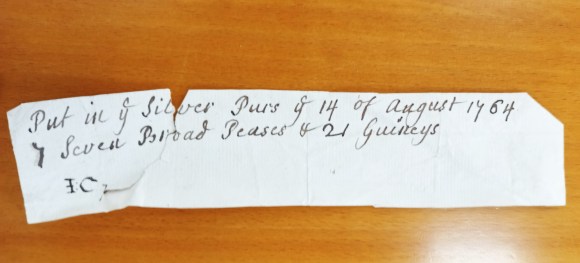 Put in ye Silver Purs ye 14 of August 1764
7 Seven Broad Peases & 21 Guineys
IC